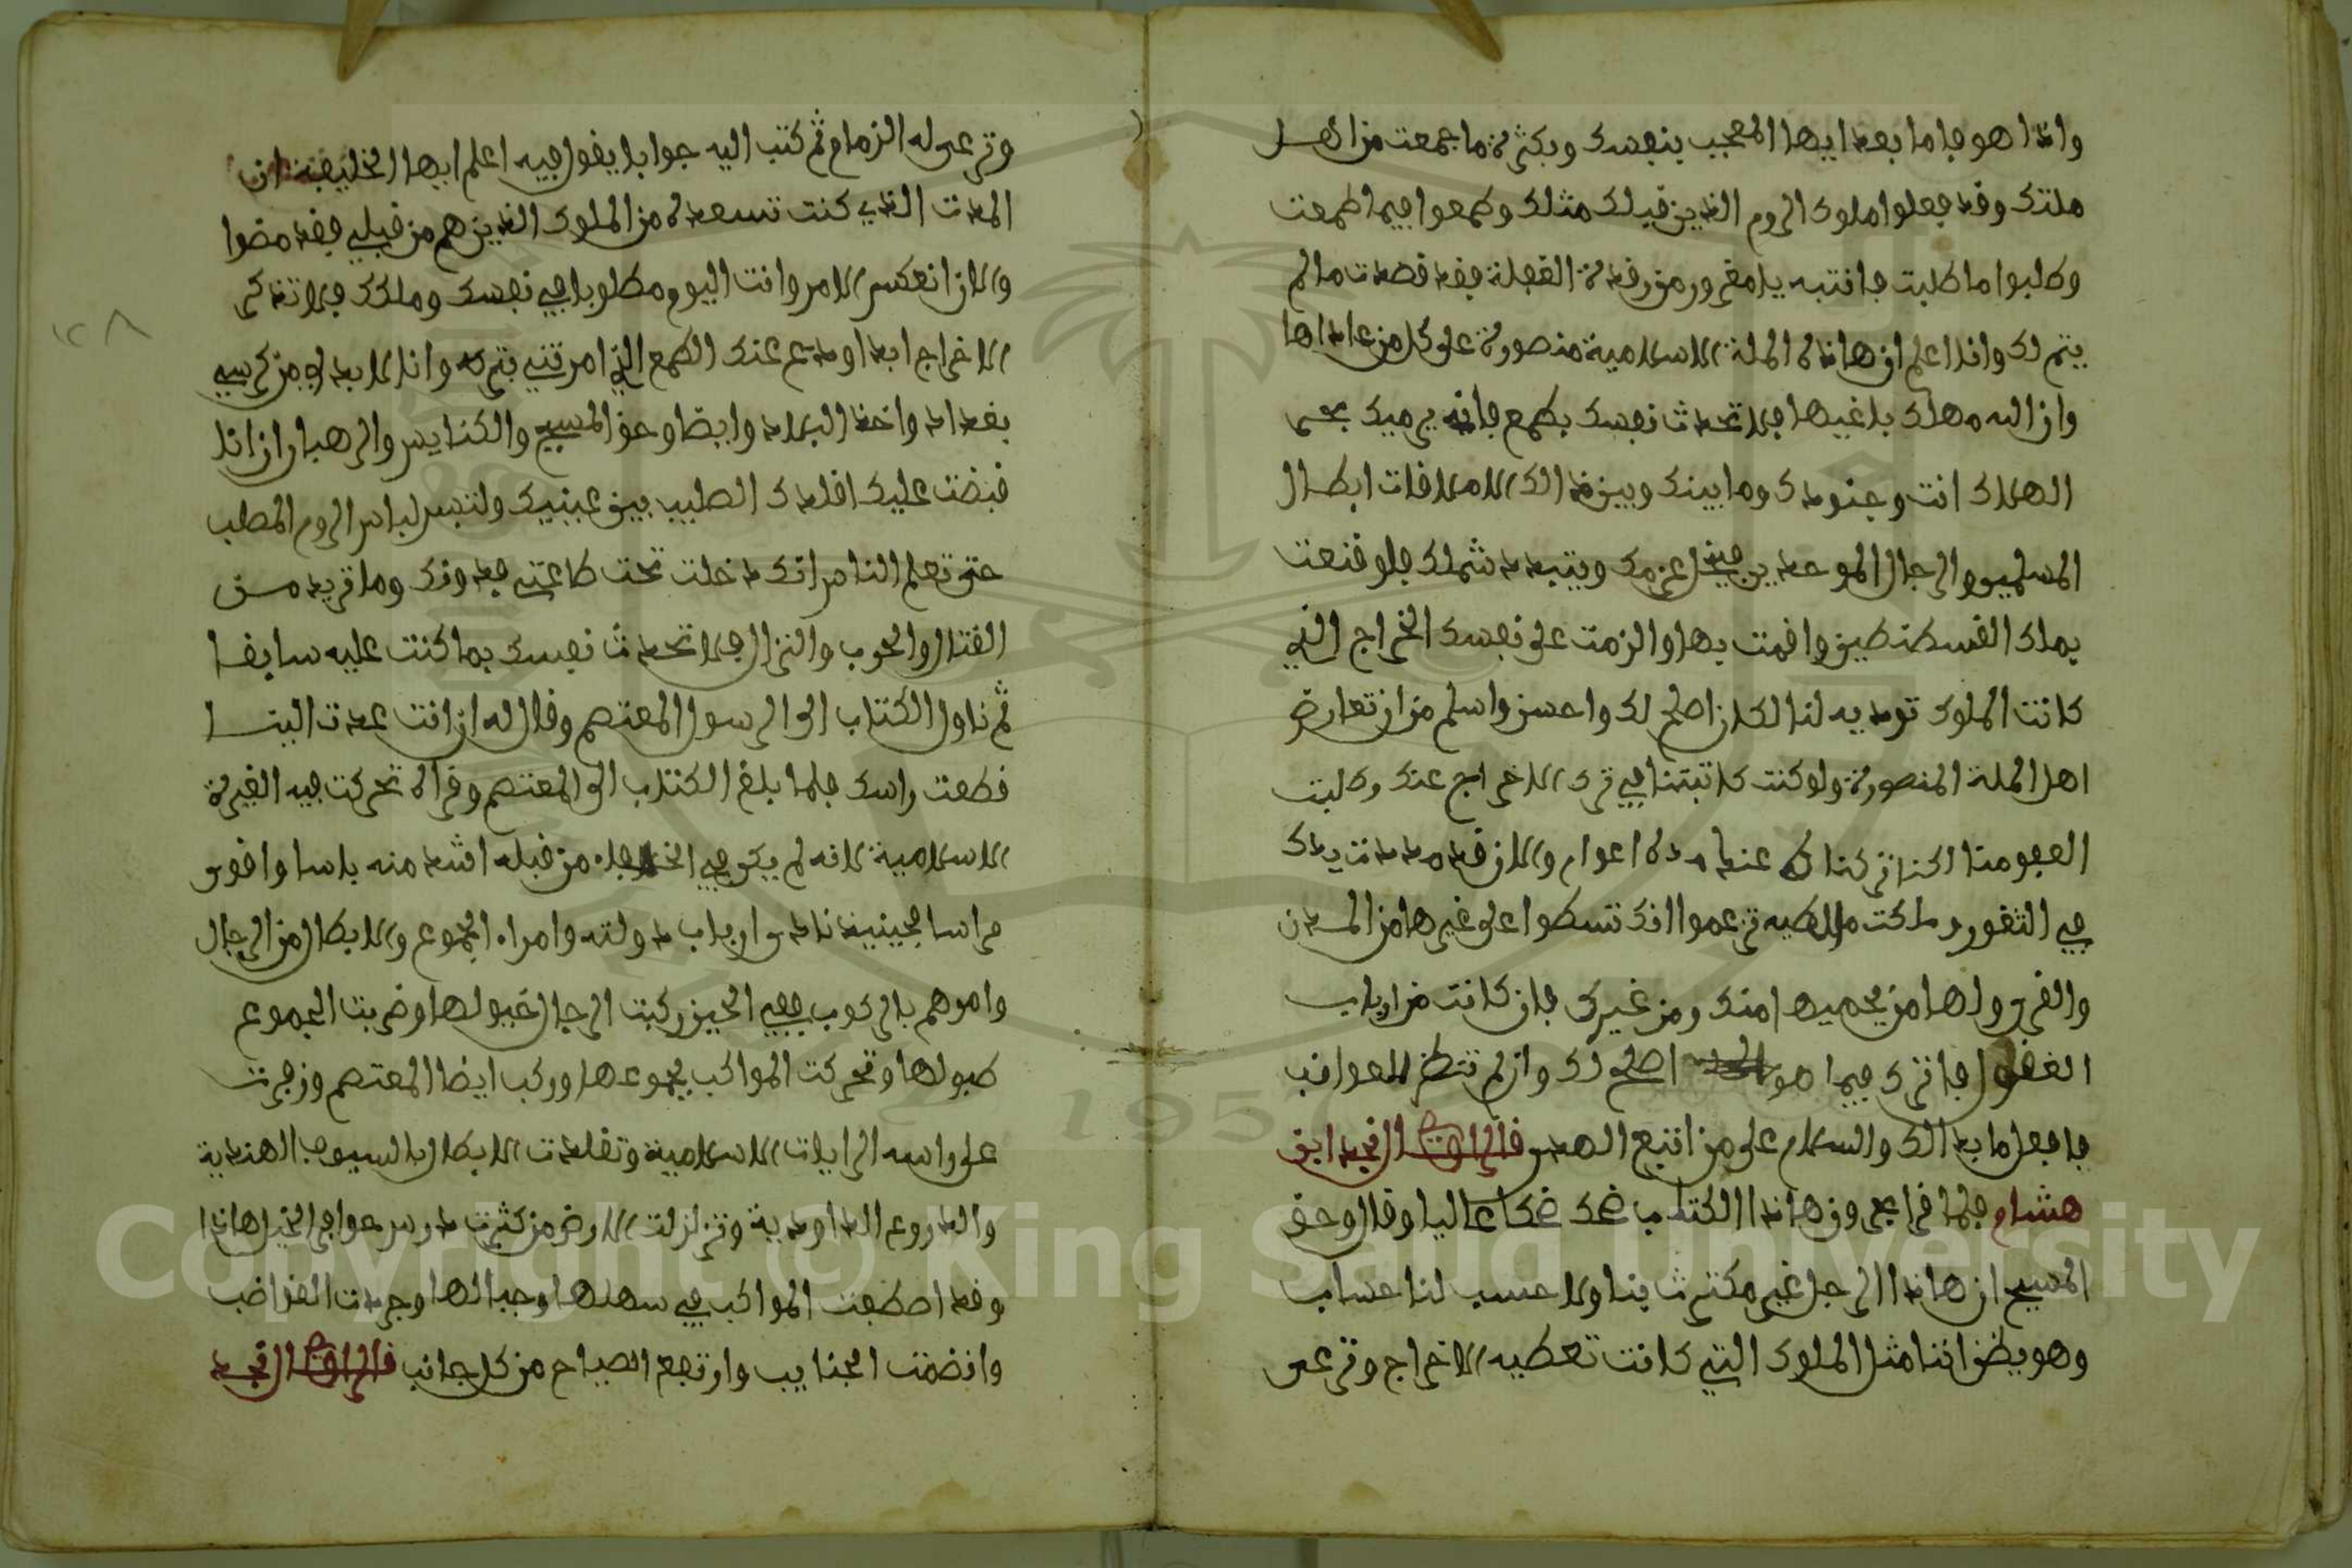 واذا هو فاما بعد ايها المعجب بنفسك وبكثرة ما جمعت من اهل
ملتك وقد فعلوا ملوك الروم الذين قبلك مثلك وطمعوا فيما طمعت
وطلبوا ما طلبت فانتبه يا مغرور من رقدة الغفلة فقد قصدت ما لم
يتم لك وانا اعلم ان هاذه الملة الاسلامية منصورة على كل من عاداها
وان الله مهلك باغيها فلا تحدث نفسك بطمع فانه يرميك بحر
الهلاك انت وجنودك وما بينك وبين ذالك الا ملاقات ابطال
المسلمين والرجال الموحدين فينحل عزمك ويتبدد شملك فلو قنعت
بملك القسطنطين واقمت بها والزمت على نفسك الخراج الذي
كانت الملوك توديه لنا لكان اصلح لك واحسن واسلم من ان تعارض
اهل الملة المنصورة ولو كنت كاتبتنا في ترك الاخراج عنك وطلبت
العفو منا لكنا تركناك عنه مدة اعوام والان قد مددت يدك
في الثغور وملكت ملطيه تزعموا انك تسطوا على غيرها من المدن
والقرى ولها من يحميها منك ومن غيرك فان كانت من ارباب
العقول فاترك فيما هو اصلح لك وان لم تنظر للعواقب
فافعل ما بدالك والسلام على من اتبع الهدى قال الراوي نجد ابن
هشام فلما قرا عمرون هاذا الكتاب ضحك ضحكا عاليا وقال وحق
المسيح ان هاذا الرجل غير مكترث بنا ولا حسب لنا حساب
وهو يظن اننا مثل الملوك التي كانت تعطيه الاخراج وترعى
وترعى له الزمام ثم كتب اليه جوابا يقول فيه اعلم ايها الخليفة ان
المدت الذي كنت تسعده من الملوك الذين هم من قبلي فقد مضوا
والان انعكس الامر وانت اليوم مطلوبا في نفسك وملكك فلا تذكر
الاخراج ابدا ودع عنك الطمع الذي امرتني بتركه وانا لا بد لي من كرسي
بغداد واخذ البلاد وايضا وحق المسيح والكنايس والرهبان ان انا
قبضت عليك اقلدك الصليب بين عينيك ولتبس لباس الروم المصلب
حتى تعلم الناس انك دخلت تحت طاعتي فدونك وما تريد من
القتال والحرب والنزال فلا تحدث نفسك بما كنت عليه سابقا
ثم ناول الكتاب الى الرسول المعتصم وقال له ان انت عدت الينا
قطعت راسك فلما بلغ الكتاب الى المعتصم وقراه تحركت فيه الغيرة
الاسلامية لانه لم يكن في الخلفاء من قبله اشد منه باسا واقوى
مراسا فحينيذ نادى ارباب دولته وامراء الجموع والابطال من الرجال
وامرهم بالركوب ففي الحين ركبت الرجال خيولها وضربت الجموع
طبولها وتحركت المواكب بجموعها وركب ايضا المعتصم وزجرت
على راسه الرايات الاسلامية وتقلدت الابطال بالسيوف الهندية
والدروع الداودية وتزلزلت الارض من كثرت دوس حوافر الخيل هاذا
وقد اصطفت المواكب في سهلها وجبالها وجردت القواضب
وانضمت الجنايب وارتفع الصياح من كل جانب قال الراوي نجد